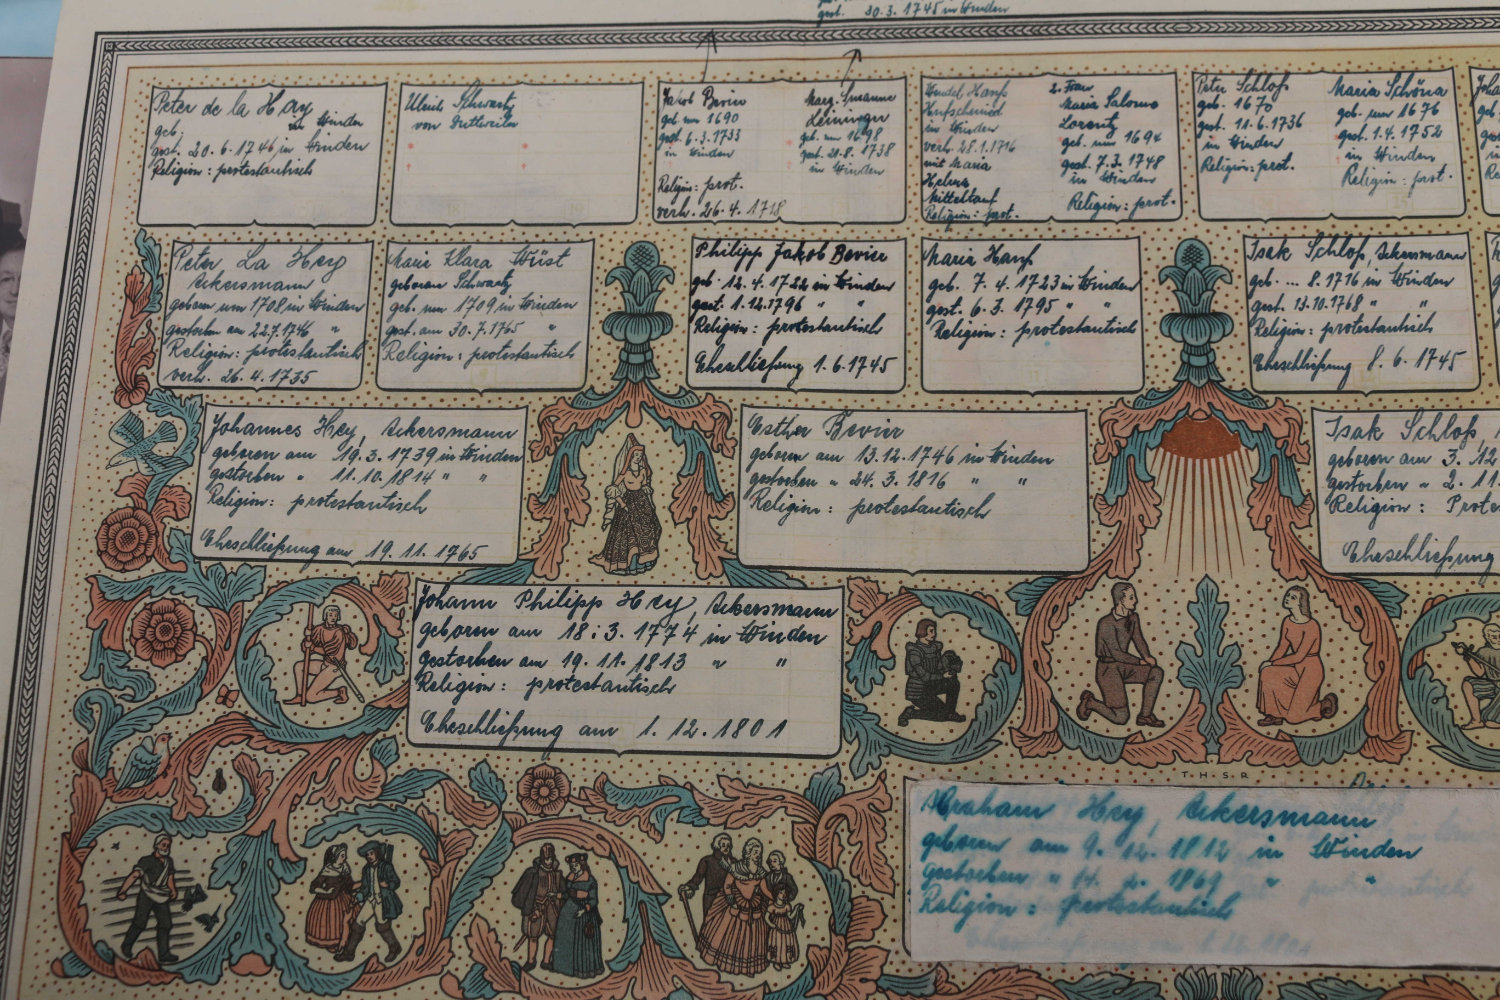 gest. 30.3.1745 in Winden
Peter de la Hey
geb. in Winden
gest. 20.6.1746 in Winden
Religion: protestantisch
Ulrich Schwartz
von
Jakob Bevier
geb. um 1690
gest. 6.3.1733
in Winden
Religion: prot.
verh. 26.4.1718
Marg. Susanne
Leininger
geb. um 1698
gest. 21.8.1738
in Winden
Wendel Hanß
Hufschmied
in Winden
verh. 28.1.1716
mit Maria
Helena
Mitteltauf
Religion: prot.
2. Frau
Maria Salome
Lorentz
geb. um 1694
gest. 7.3.1748
in Winden
Religion: prot.
Peter Schloß
geb. 1670
gest. 11.6.1736
in Winden
Religion: prot.
Maria Schöna
geb. um 1676
gest. 1.4.1752
in Winden
Religion: prot.
Peter La Hey
Ackersmann
geboren um 1708 in Winden
gestorben am 22.7.1746 "
Religion: protestantisch
verh. 26.4.1735
Maria Klara Wüst
geborene Schwartz
geb. um 1709 in Winden
gest. am 30.7.1765 "
Religion: protestantisch
Philipp Jakob Bevier
geb. 12.4.1722 in Winden
gest. 1.12.1796 " "
Religion: protestantisch
Eheschließung 1.6.1745
Maria Hanß
geb. 7.4.1723 in Winden
gest. 6.3.1795 " "
Religion: protestantisch
Isak Schloß, Ackersmann
geb. ... 8.1716 in Winden
gest. 13.10.1768 " "
Religion: protestantisch
Eheschließung 8.6.1745
Johannes Hey, Ackersmann
geboren am 19.3.1739 in Winden
gestorben " 11.10.1814 " "
Religion: protestantisch
Eheschließung am 19.11.1765
Esther Bevier
geboren am 13.12.1746 in Winden
gestorben " 24.3.1816 " "
Religion: protestantisch
Isak Schloß,
geboren am 3. 12
gestorben " 2. 11.
Religion: Prote
Eheschließung
Johann Philipp Hey, Ackersmann
geboren am 18.3.1774 in Winden
gestorben am 19.11.1813 " "
Religion: protestantisch
Eheschließung am 1.12.1801
T.H.S.R
Abraham Hey, Ackersmann
geboren am 9. 12. 1812 in Winden
gestorben " 14. 1869 " "
Religion: protestantisch